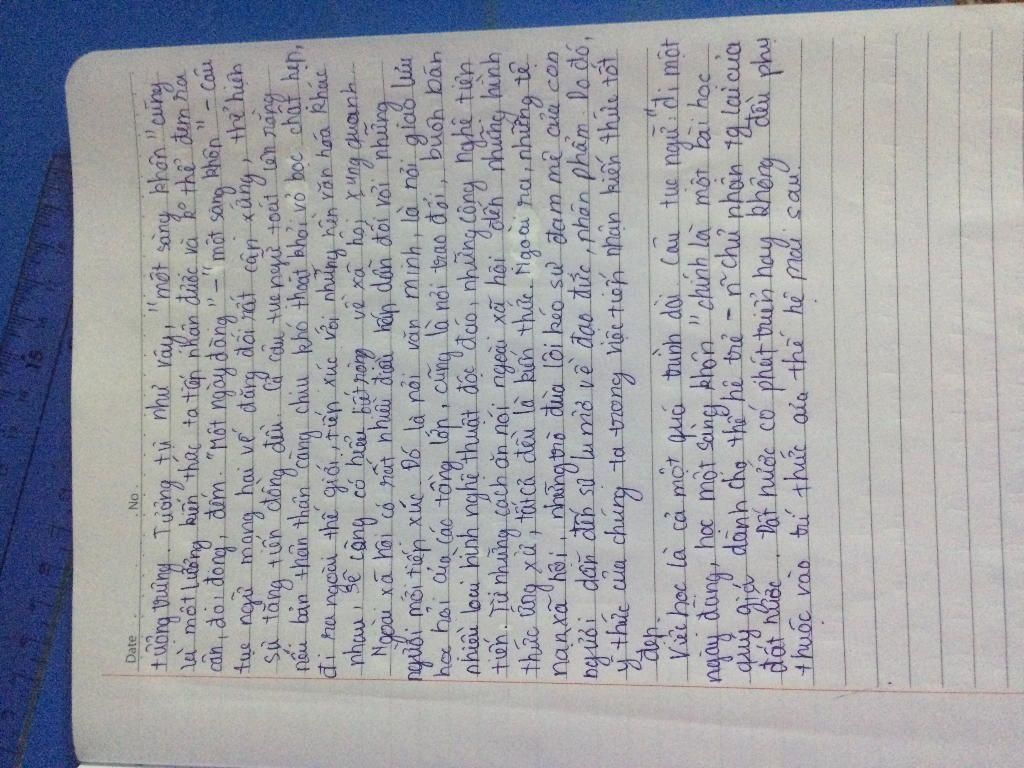 Date No
tượng trưng. Tương tự như vậy, "một sàng khôn" cũng
là một lượng kiến thức ta tấp nhận được và ko thể đem ra
cân, đo, đong, đếm. "Một ngày đàng" - "một sàng khôn" - câu
tục ngữ mang hai vế đăng đối rất cận xứng, thể hiện
sự tăng tiến đồng đều. Cả câu tục ngữ toát lên rằng
nếu bản thân thân càng chịu khó thoát khỏi vỏ bọc chật hẹp,
đi ra ngoài thế giới, tiếp xúc với những nền văn hóa khác
nhau, sẽ càng có hiểu biết rộng về xã hội xung quanh.
Ngoài xã hội có rất nhiều điều hấp dẫn đối với những
người mới tiếp xúc. Đó là nơi văn minh, là nơi giao lưu
học hỏi của các tầng lớp, cũng là nơi trao đổi, buôn bán
nhiều loại hình nghệ thuật độc đáo, những công nghệ tiên
tiến. Từ những cách ăn nói ngoài xã hội đến những hành
thức ứng xử, tất cả đều là kiến thức. Ngoài ra, những tệ
nạn xã hội, những trò đùa lôi kéo sự đam mê của con
người dẫn đến sự lu mờ về đạo đức, nhân phẩm. Do đó,
ý thức của chúng ta trong việc tiếp nhận kiến thức tốt
đẹp.
Việc học là cả một quá trình dài. Câu tục ngữ "đi một
ngày đàng, học một sàng khôn" chính là một bài học
quý giá dành cho thế hệ trẻ - n~ chủ nhân tg lai của
đất nước. Đất nước có phát triển hay không đều phụ
thuộc vào tri thức của thế hệ mai sau.